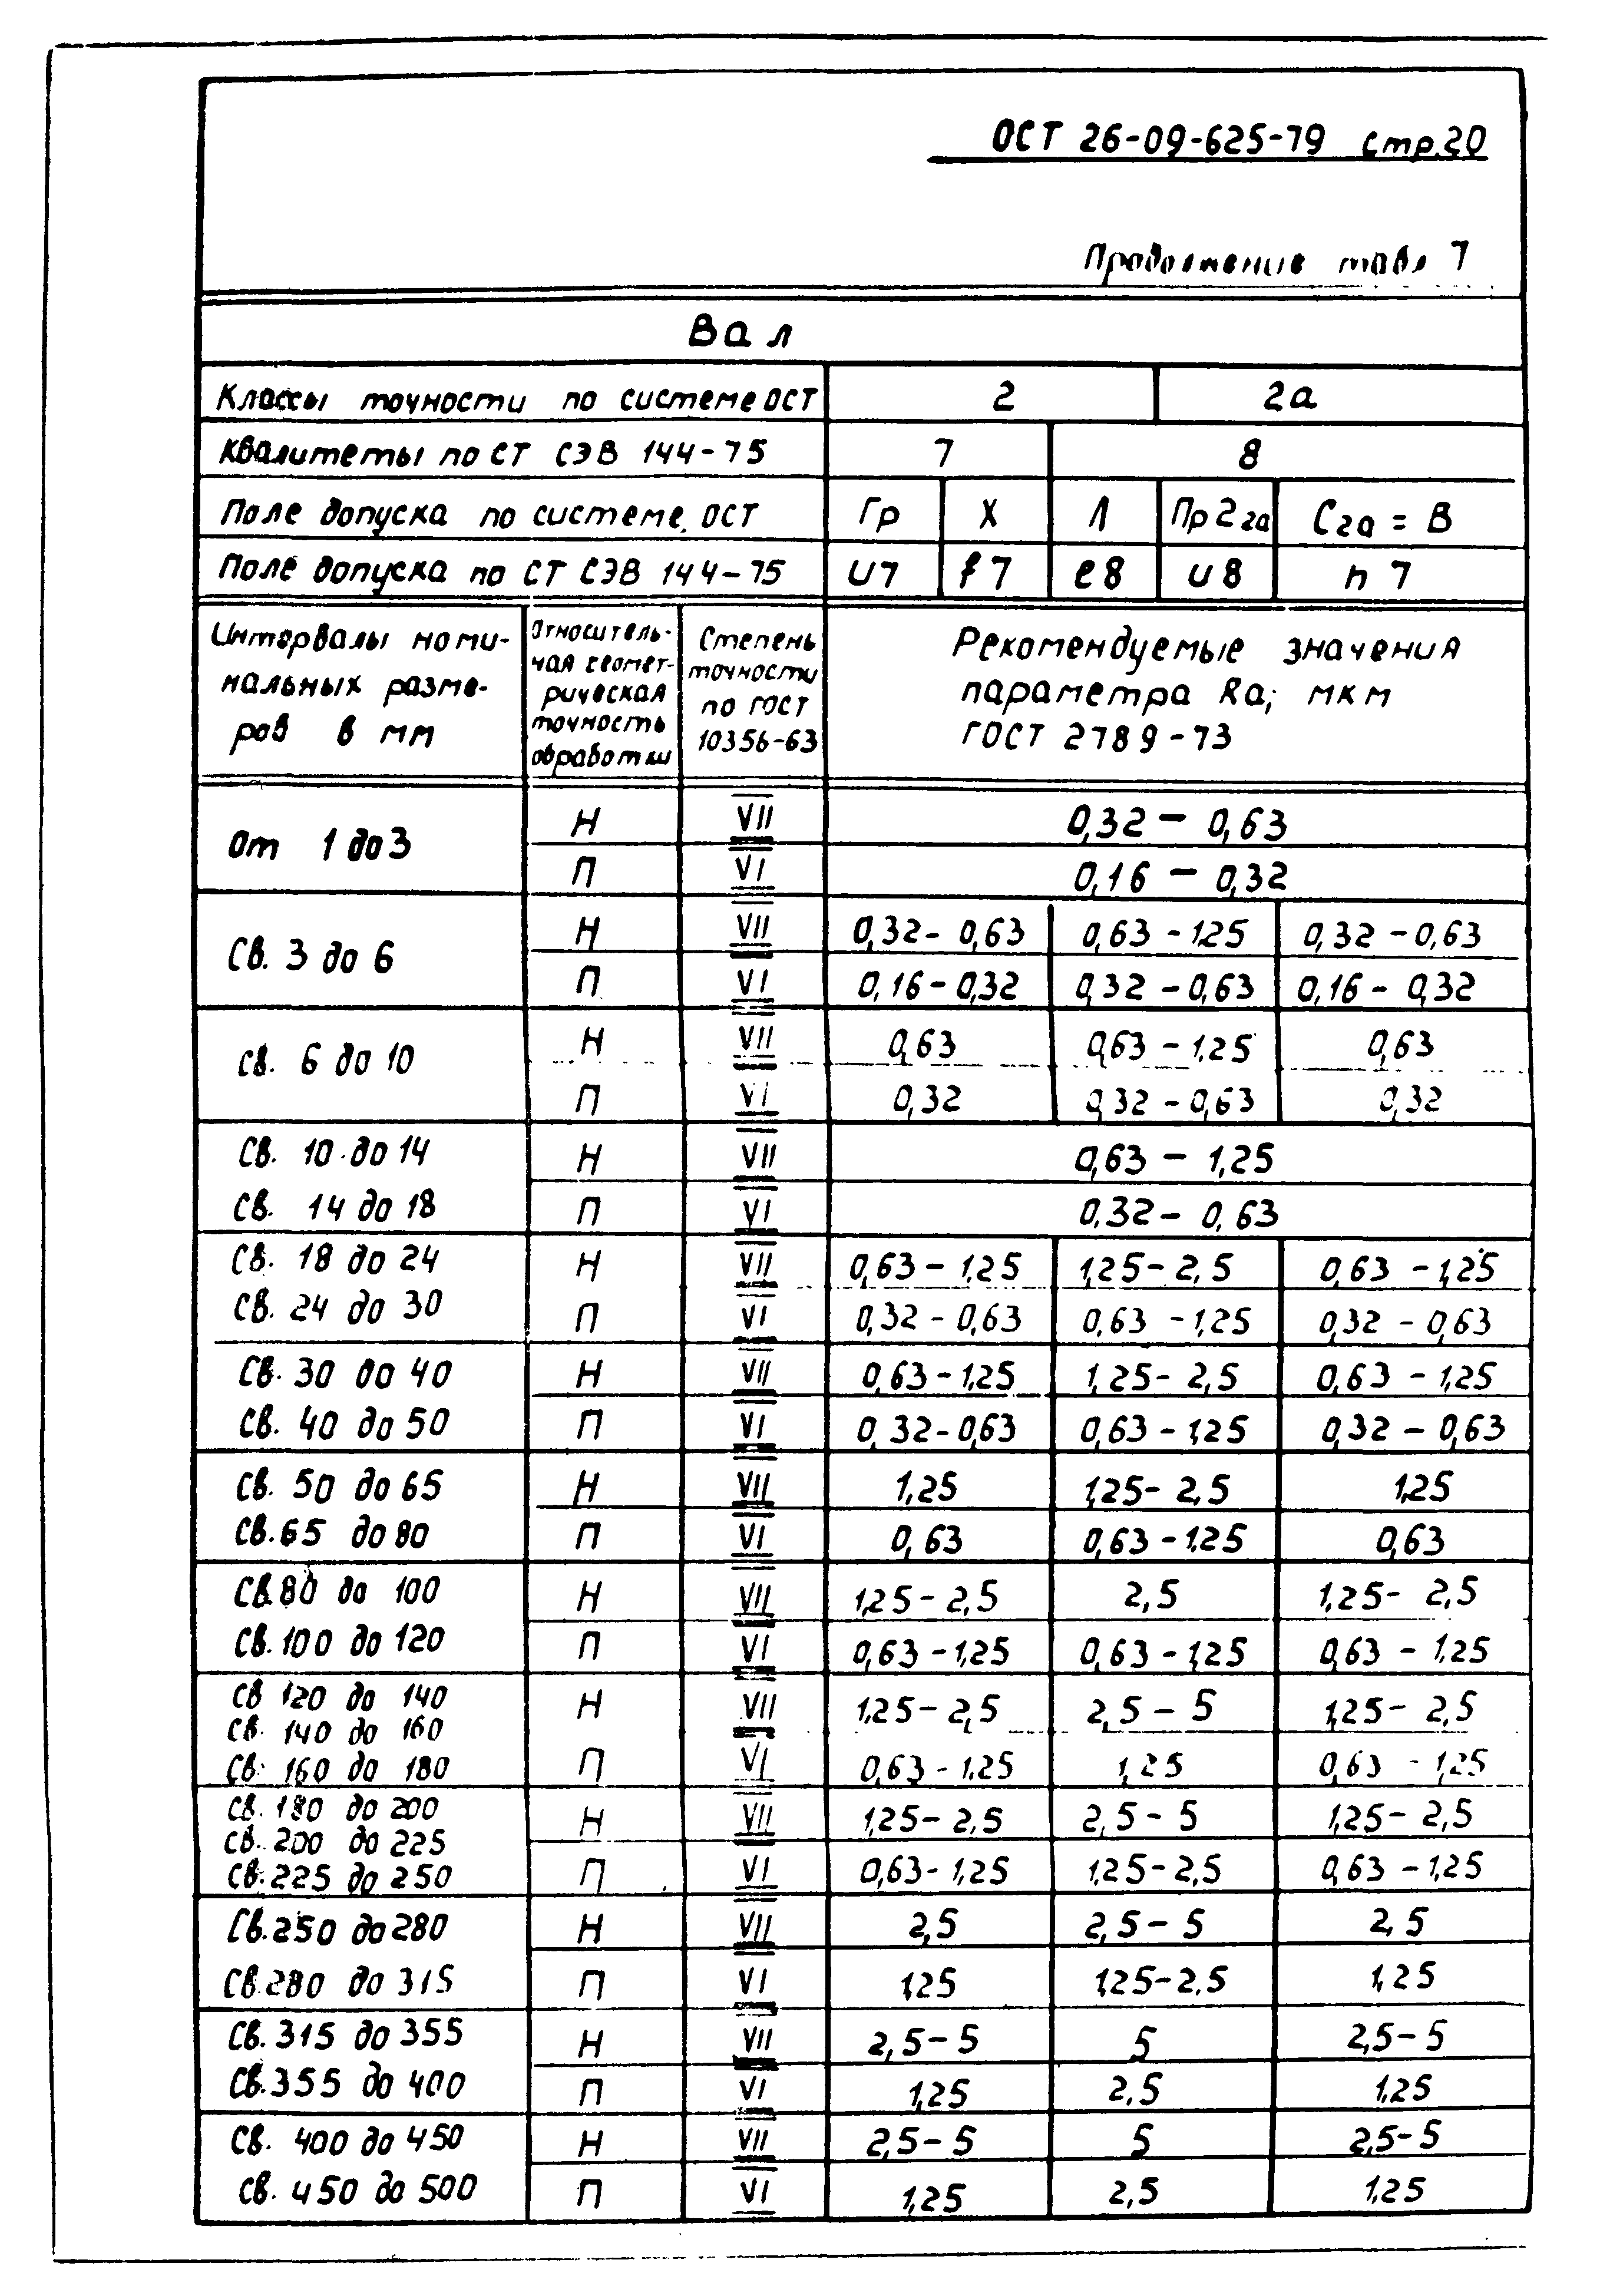 ОСТ 26-09-625-79 стр.20
Продолжение табл 7
Вал
Классы точности по системе ОСТ 2 2а
Квалитеты по СТ СЭВ 144-75 7 8
Поле допуска по системе. ОСТ Гр Х Л Пр2 2а С2а = В
Поле допуска по СТ СЭВ 144-75 u7 f7 e8 u8 n7
Интервалы номи-
нальных разме-
ров в мм
Относитель-
ная геомет-
рическая
точность
обработки
Степень
точности
по ГОСТ
10356-63
Рекомендуемые значения
параметра Ra; мкм
ГОСТ 2789-73
От 1 до 3
Н VII 0,32 - 0,63
П VI 0,16 - 0,32
Св. 3 до 6
Н VII 0,32 - 0,63 0,63 - 1,25 0,32 - 0,63
П VI 0,16 - 0,32 0,32 - 0,63 0,16 - 0,32
св. 6 до 10
Н VII 0,63 0,63 - 1,25 0,63
П VI 0,32 0,32 - 0,63 0,32
Св. 10 до 14 Н VII 0,63 - 1,25
Св. 14 до 18 П VI 0,32 - 0,63
Св. 18 до 24 Н VII 0,63 - 1,25 1,25 - 2,5 0,63 - 1,25
Св. 24 до 30 П VI 0,32 - 0,63 0,63 - 1,25 0,32 - 0,63
Св. 30 до 40 Н VII 0,63 - 1,25 1,25 - 2,5 0,63 - 1,25
Св. 40 до 50 П VI 0,32 - 0,63 0,63 - 1,25 0,32 - 0,63
Св. 50 до 65 Н VII 1,25 1,25 - 2,5 1,25
Св. 65 до 80 П VI 0,63 0,63 - 1,25 0,63
Св. 80 до 100 Н VII 1,25 - 2,5 2,5 1,25 - 2,5
Св. 100 до 120 П VI 0,63 - 1,25 0,63 - 1,25 0,63 - 1,25
Св 120 до 140 Н VII 1,25 - 2,5 2,5 - 5 1,25 - 2,5
Св. 140 до 160
Св. 160 до 180 П VI 0,63 - 1,25 1,25 0,63 - 1,25
Св. 180 до 200 Н VII 1,25 - 2,5 2,5 - 5 1,25 - 2,5
Св. 200 до 225
Св. 225 до 250 П VI 0,63 - 1,25 1,25 - 2,5 0,63 - 1,25
Св. 250 до 280 Н VII 2,5 2,5 - 5 2,5
Св. 280 до 315 П VI 1,25 1,25 - 2,5 1,25
Св. 315 до 355 Н VII 2,5 - 5 5 2,5 - 5
Св. 355 до 400 П VI 1,25 2,5 1,25
Св. 400 до 450 Н VII 2,5 - 5 5 2,5 - 5
Св. 450 до 500 П VI 1,25 2,5 1,25